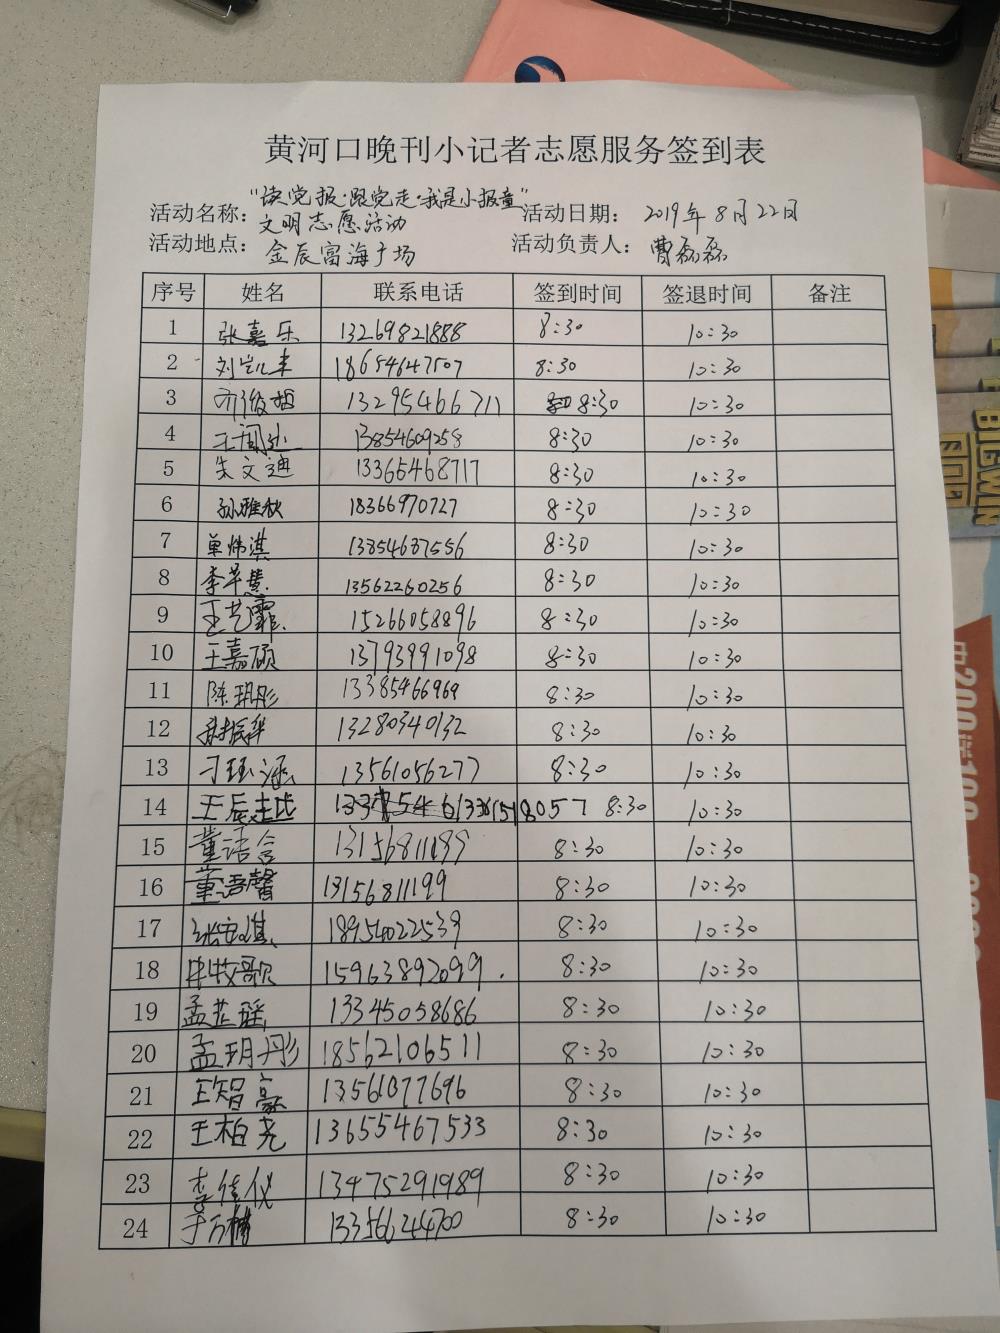 黄河口晚刊小记者志愿服务签到表
活动名称：“读党报·跟党走·我是小报童” 活动日期： 2019年8月22日
文明志愿活动
活动地点： 金辰富海广场 活动负责人：曹磊磊
序号 姓名 联系电话 签到时间 签退时间 备注
1 张嘉乐 13269821888 8:30 10:30
2 刘 18654647507 8:30 10:30
3 13295466711 8:30 10:30
4 13854609258 8:30 10:30
5 朱文迪 13365468717 8:30 10:30
6 孙雅秋 18366970727 8:30 10:30
7 单炜淇 13854687556 8:30 10:30
8 李苹慧 13562260256 8:30 10:30
9 王艺霏 15266058896 8:30 10:30
10 王嘉硕 13793991098 8:30 10:30
11 陈玥彤 13385466969 8:30 10:30
12 13280340132 8:30 10:30
13 刁珏涵 13561056277 8:30 10:30
14 王辰 8:30 10:30
15 董语含 13156811199 8:30 10:30
16 董语馨 13156811199 8:30 10:30
17 张安淇 18954022539 8:30 10:30
18 牧歌 15963892099 8:30 10:30
19 孟芷瑶 13345058686 8:30 10:30
20 孟玥彤 18562106511 8:30 10:30
21 王智豪 13561077696 8:30 10:30
22 王柏尧 13655467533 8:30 10:30
23 李佳仪 13475291989 8:30 10:30
24 于万 13356624700 8:30 10:30
BIGWIN